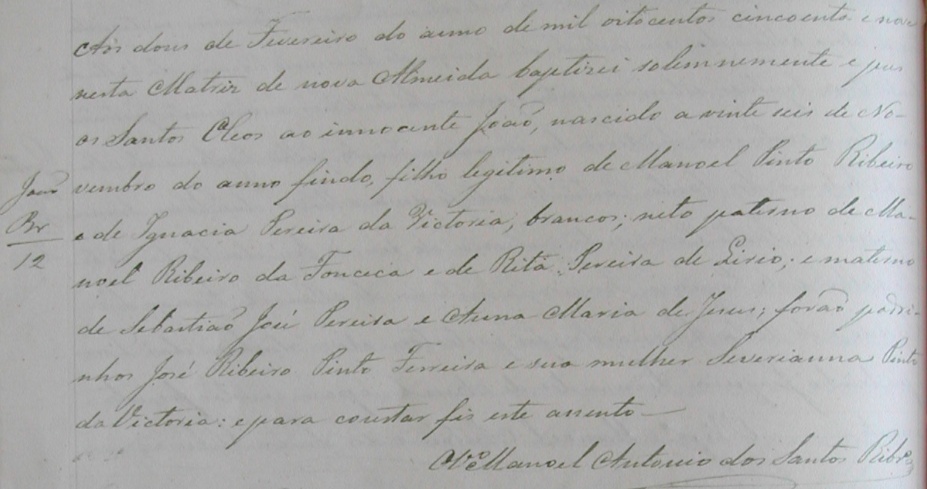 Aos dous de Fevereiro do anno de mil oitocentos cincoenta e nove
nesta Matriz de nova Almeida baptizei solemnemente e pus
os Santos Oleos ao innocente João, nascido a vinte seis de No-
vembro do anno findo, filho legitimo de Manoel Pinto Ribeiro
e de Ignacia Pereira da Victoria, brancos; neto paterno de Ma-
noel Ribeiro da Fonceca e de Rita Pereira de Lirio; e materno
de Sebastião José Pereira e Anna Maria de Jesus; forão padri-
nhos José Ribeiro Pinto Ferreira e sua mulher Severianna Pinto
da Victoria: e para constar fis este assento
Manoel Antonio dos Santos Ribrº
João
Br
12